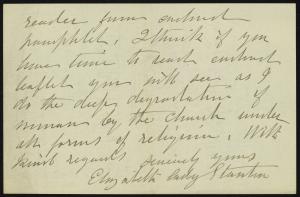 reader from enclosed
pamphlet. I think if you
have time to read enclosed
leaflet you will see as I
do the deep degradation of
woman by the church under
all forms of religion. With
kind regards sincerely yours
Elizabeth Cady Stanton